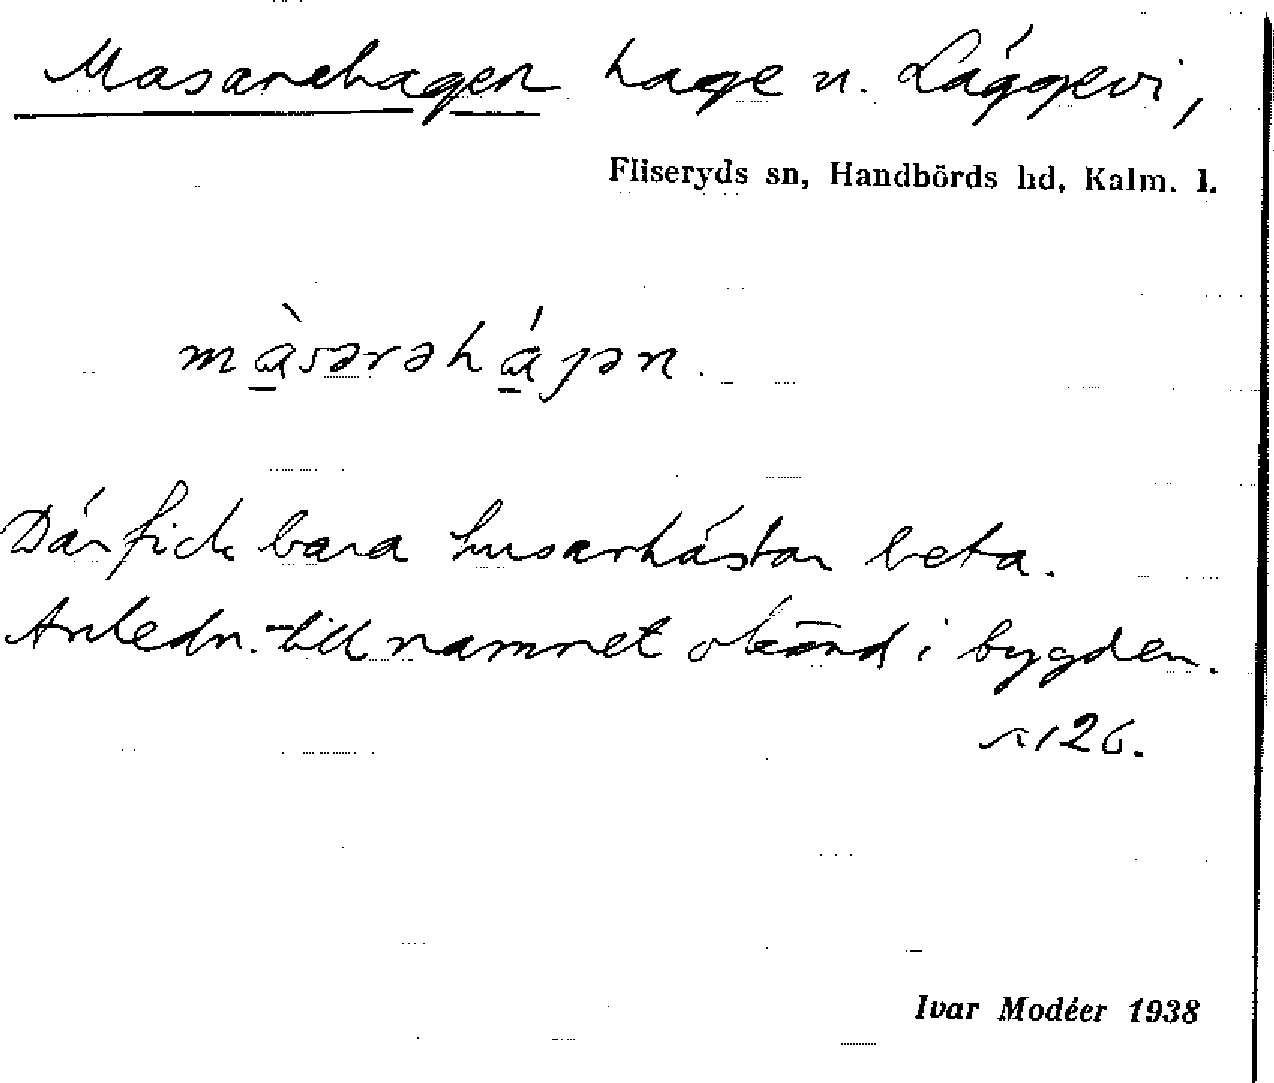 Masarehagen hage n. Läggevi,
Fliseryds sn, Handbörds hd, Kalm. l.
màsərəhájən.
Där fick bara husarhästar beta.
Anledn. till namnet okänd i bygden.
126.
Ivar Modéer 1938